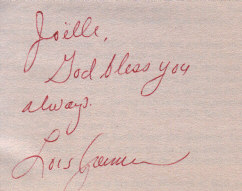 Joëlle,
God bless you
always.
Lois